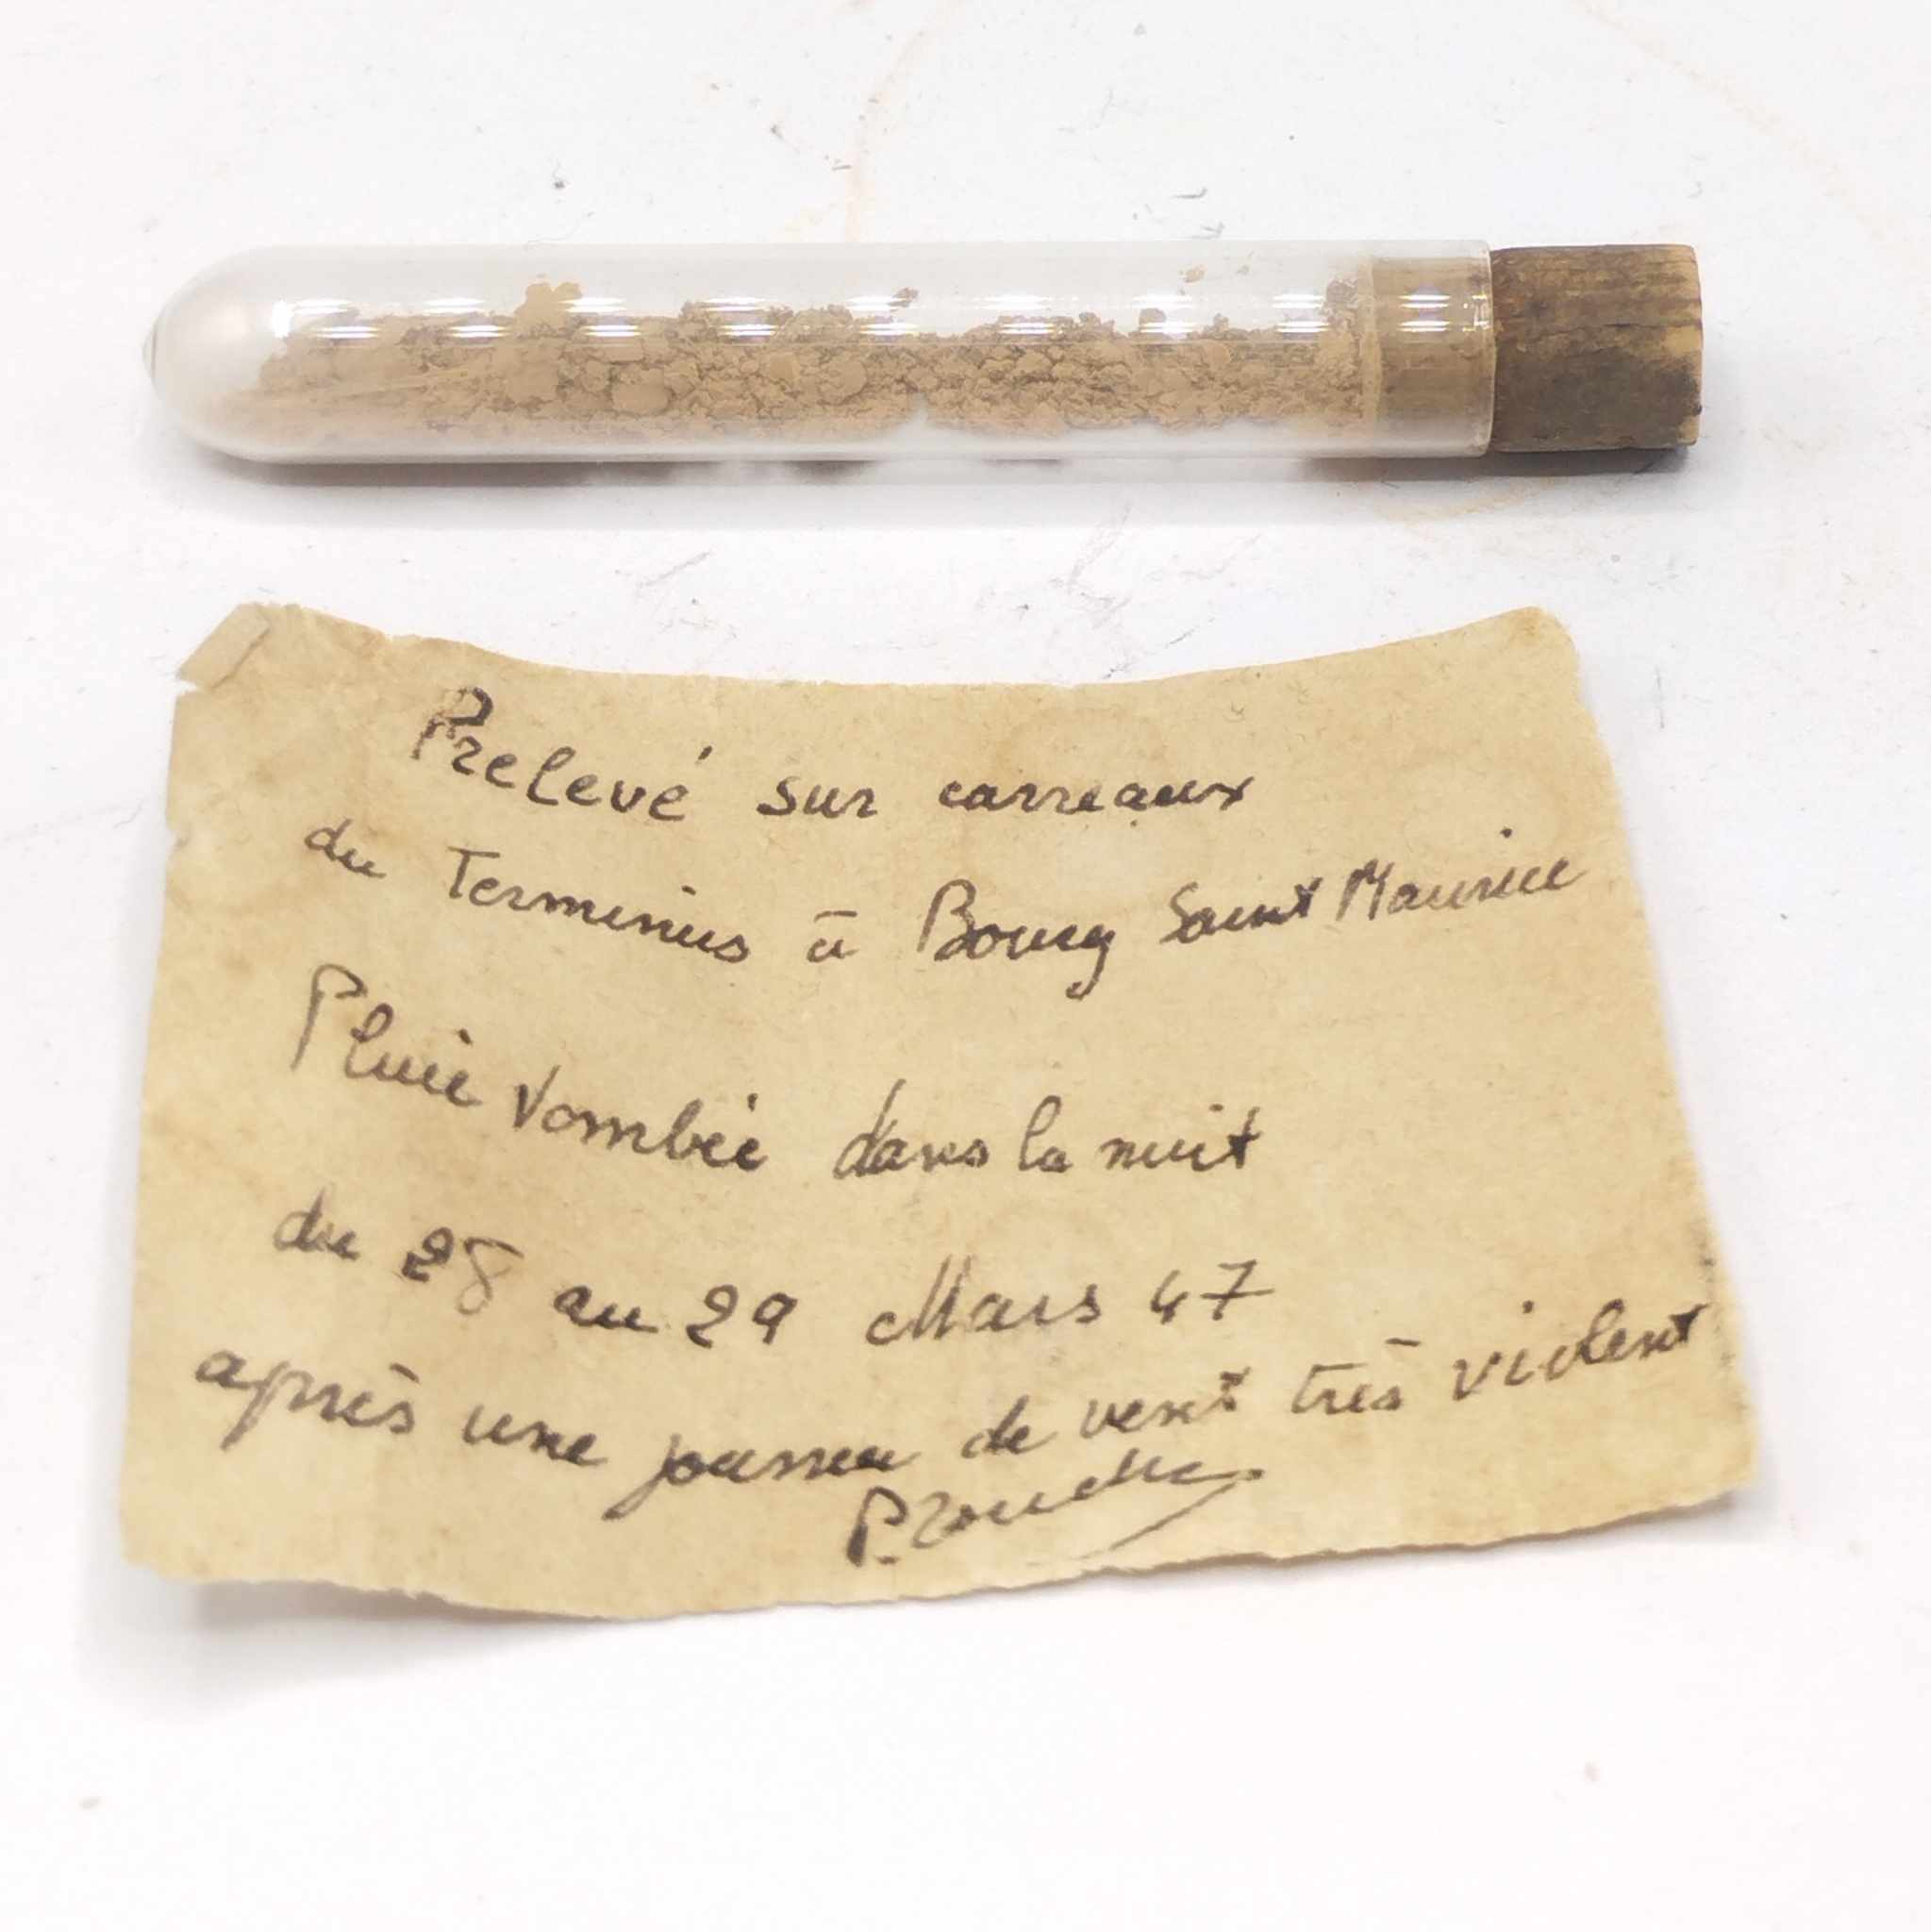 Prelevé sur carreaux
du Terminus à Bourg Saint Maurice
Pluie tombée dans la nuit
du 28 au 29 Mars 47
après une journée de vent très violent
P.